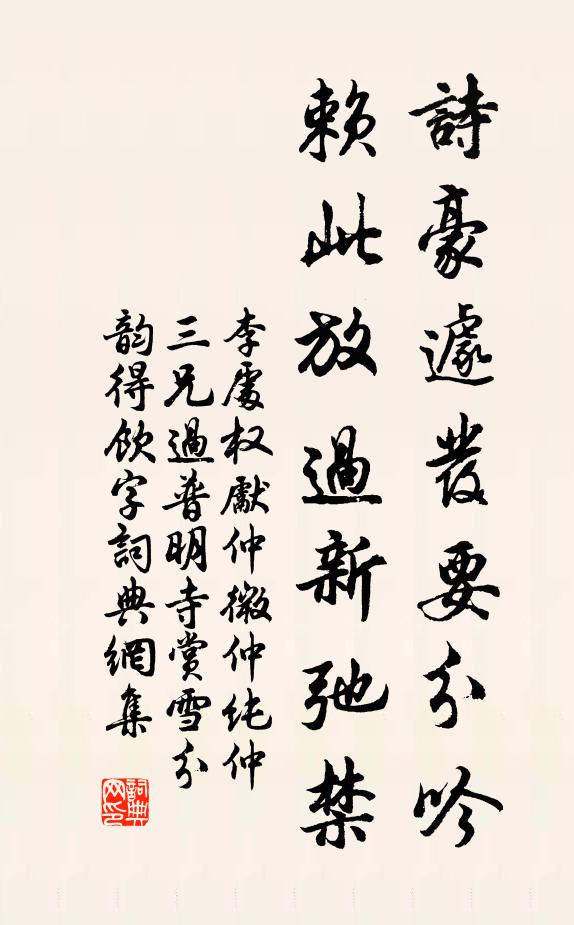 詩豪遽發要分吟
賴此放過新弛禁
李處权獻仲微仲純仲
三兄過普明寺賞雪分
韵得飲字詞典網集
詞典网印